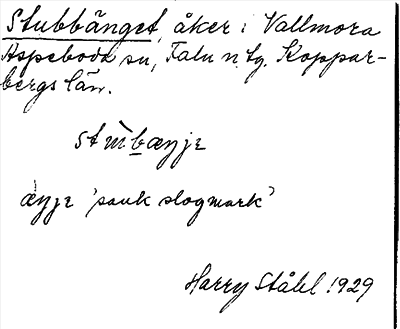 Stubbänget, åker i Vallmora
Aspeboda sn, Falu n. tg. Koppar-
bergs län.
stùbæŋje
æŋje 'sank slogmark'
Harry Ståhl 1929